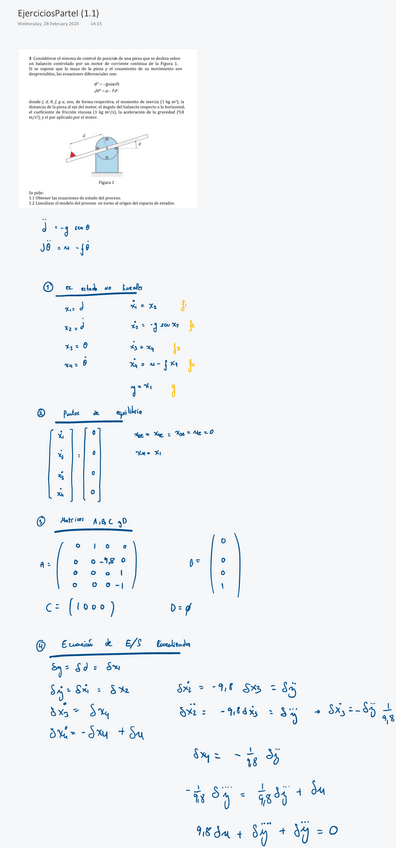 EjerciciosPartel (1.1)
Wednesday, 28 February 2024 14:15
1. Considérese el sistema de control de posición de una pieza que se desliza sobre
un balancín controlado por un motor de corriente continua de la Figura 1.
Si se supone que la masa de la pieza y el rozamiento de su movimiento son
despreciables, las ecuaciones diferenciales son:
d'' = -g sen(θ)
Jθ'' = u - fθ'
donde J, d, θ, f, g, u, son, de forma respectiva, el momento de inercia (1 kg m²), la
distancia de la pieza al eje del motor, el ángulo del balancín respecto a la horizontal,
el coeficiente de fricción viscosa (1 kg m²/s), la aceleración de la gravedad (9,8
m/s²), y el par aplicado por el motor.
d
θ
Figura 1
Se pide:
1.1 Obtener las ecuaciones de estado del proceso.
1.2 Linealizar el modelo del proceso en torno al origen del espacio de estados.
d̈ = -g sen θ
Jθ̈ = u - fθ̇
① ec. estado no lineales
x₁ = d ẋ₁ = x₂ f₁
x₂ = ḋ ẋ₂ = -g sen x₃ f₂
x₃ = θ ẋ₃ = x₄ f₃
x₄ = θ̇ ẋ₄ = u - f x₄ f₄
y = x₁ g
② Puntos de equilibrio
[ẋ₁ ẋ₂ ẋ₃ ẋ₄] = [0 0 0 0]
③ Matrices A, B, C y D
A = ( 0 1 0 0
0 0 -9,8 0
0 0 0 1
0 0 0 -1 )
B = ( 0 0 0 1 )
C = (1 0 0 0) D = ∅
④ Ecuación de E/S linealizada
δy = δd = δx₁
δẏ = δẋ₁ = δx₂ δẋ₂ = -9,8 δx₃ = δÿ
δẋ₃ = δx₄ δẍ₂ = -9,8 δẋ₃ = δy⃛ → δẋ₃ = -δy⃛ 1/9,8
δẋ₄ = -δx₄ + δu
δx₄ = - 1/9,8 δy⃛
- 1/9,8 δy⃜ = 1/9,8 δy⃛ + δu
9,8 δu + δy⃜ + δy⃛ = 0